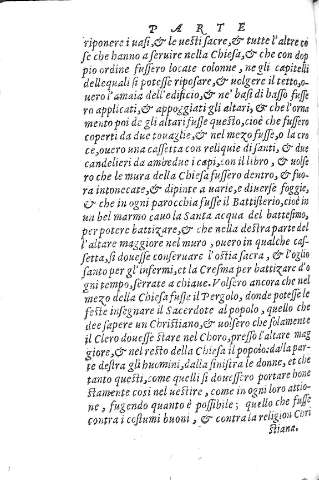 PARTE
riponere i uasi, & le uesti sacre, & tutte l'altre co
se che hanno a seruire nella Chiesa, & che con dop
pio ordine fussero locate colonne, ne gli capitelli
delle quali si potesse riposare, & uolgere il tetto, o
uero l'amaia dell'edificio, & ne' basi di basso fusse
ro applicati, & appoggiati gli altari, & che l'orna
mento poi de gli altari fusse questo, cioè che fussero
coperti da due touaglie, & nel mezo fusse, o la cro
ce, ouero una cassetta con reliquie di santi, & due
candelieri da ambedue i capi, con il libro, & uolse
ro che le mura della Chiesa fussero dentro, & fuo
ra intonecate, & dipinte a uarie, e diuerse foggie,
& che in ogni parocchia fusse il Battisterio, cioè in
un bel marmo cauo la Santa acqua del battesimo,
per potere battizare, & che nella destra parte del
l'altare maggiore nel muro, ouero in qualche cas-
setta, si douesse conseruare l'ostia sacra, & l'oglio
santo per gl'infermi, et la Cresma per battizare d'o
gni tempo, serrate a chiaue. Volsero ancora che nel
mezo della Chiesa fusse il Pergolo, donde potesse le
feste insegnare il Sacerdote al popolo, quello che
dee sapere un Christiano, & uolsero che solamente
il Clero douesse stare nel Choro, presso l'altare mag
giore, & nel resto della Chiesa il popolo: dalla par-
te destra gli huomini, dalla sinistra le donne, et che
tanto questi, come quelli si douessero portare hone
stamente cosi nel uestire, come in ogni loro attio-
ne, fugendo quanto è possibile; quello che fusse
contra i costumi buoni, & contra la religion Chri
stiana.